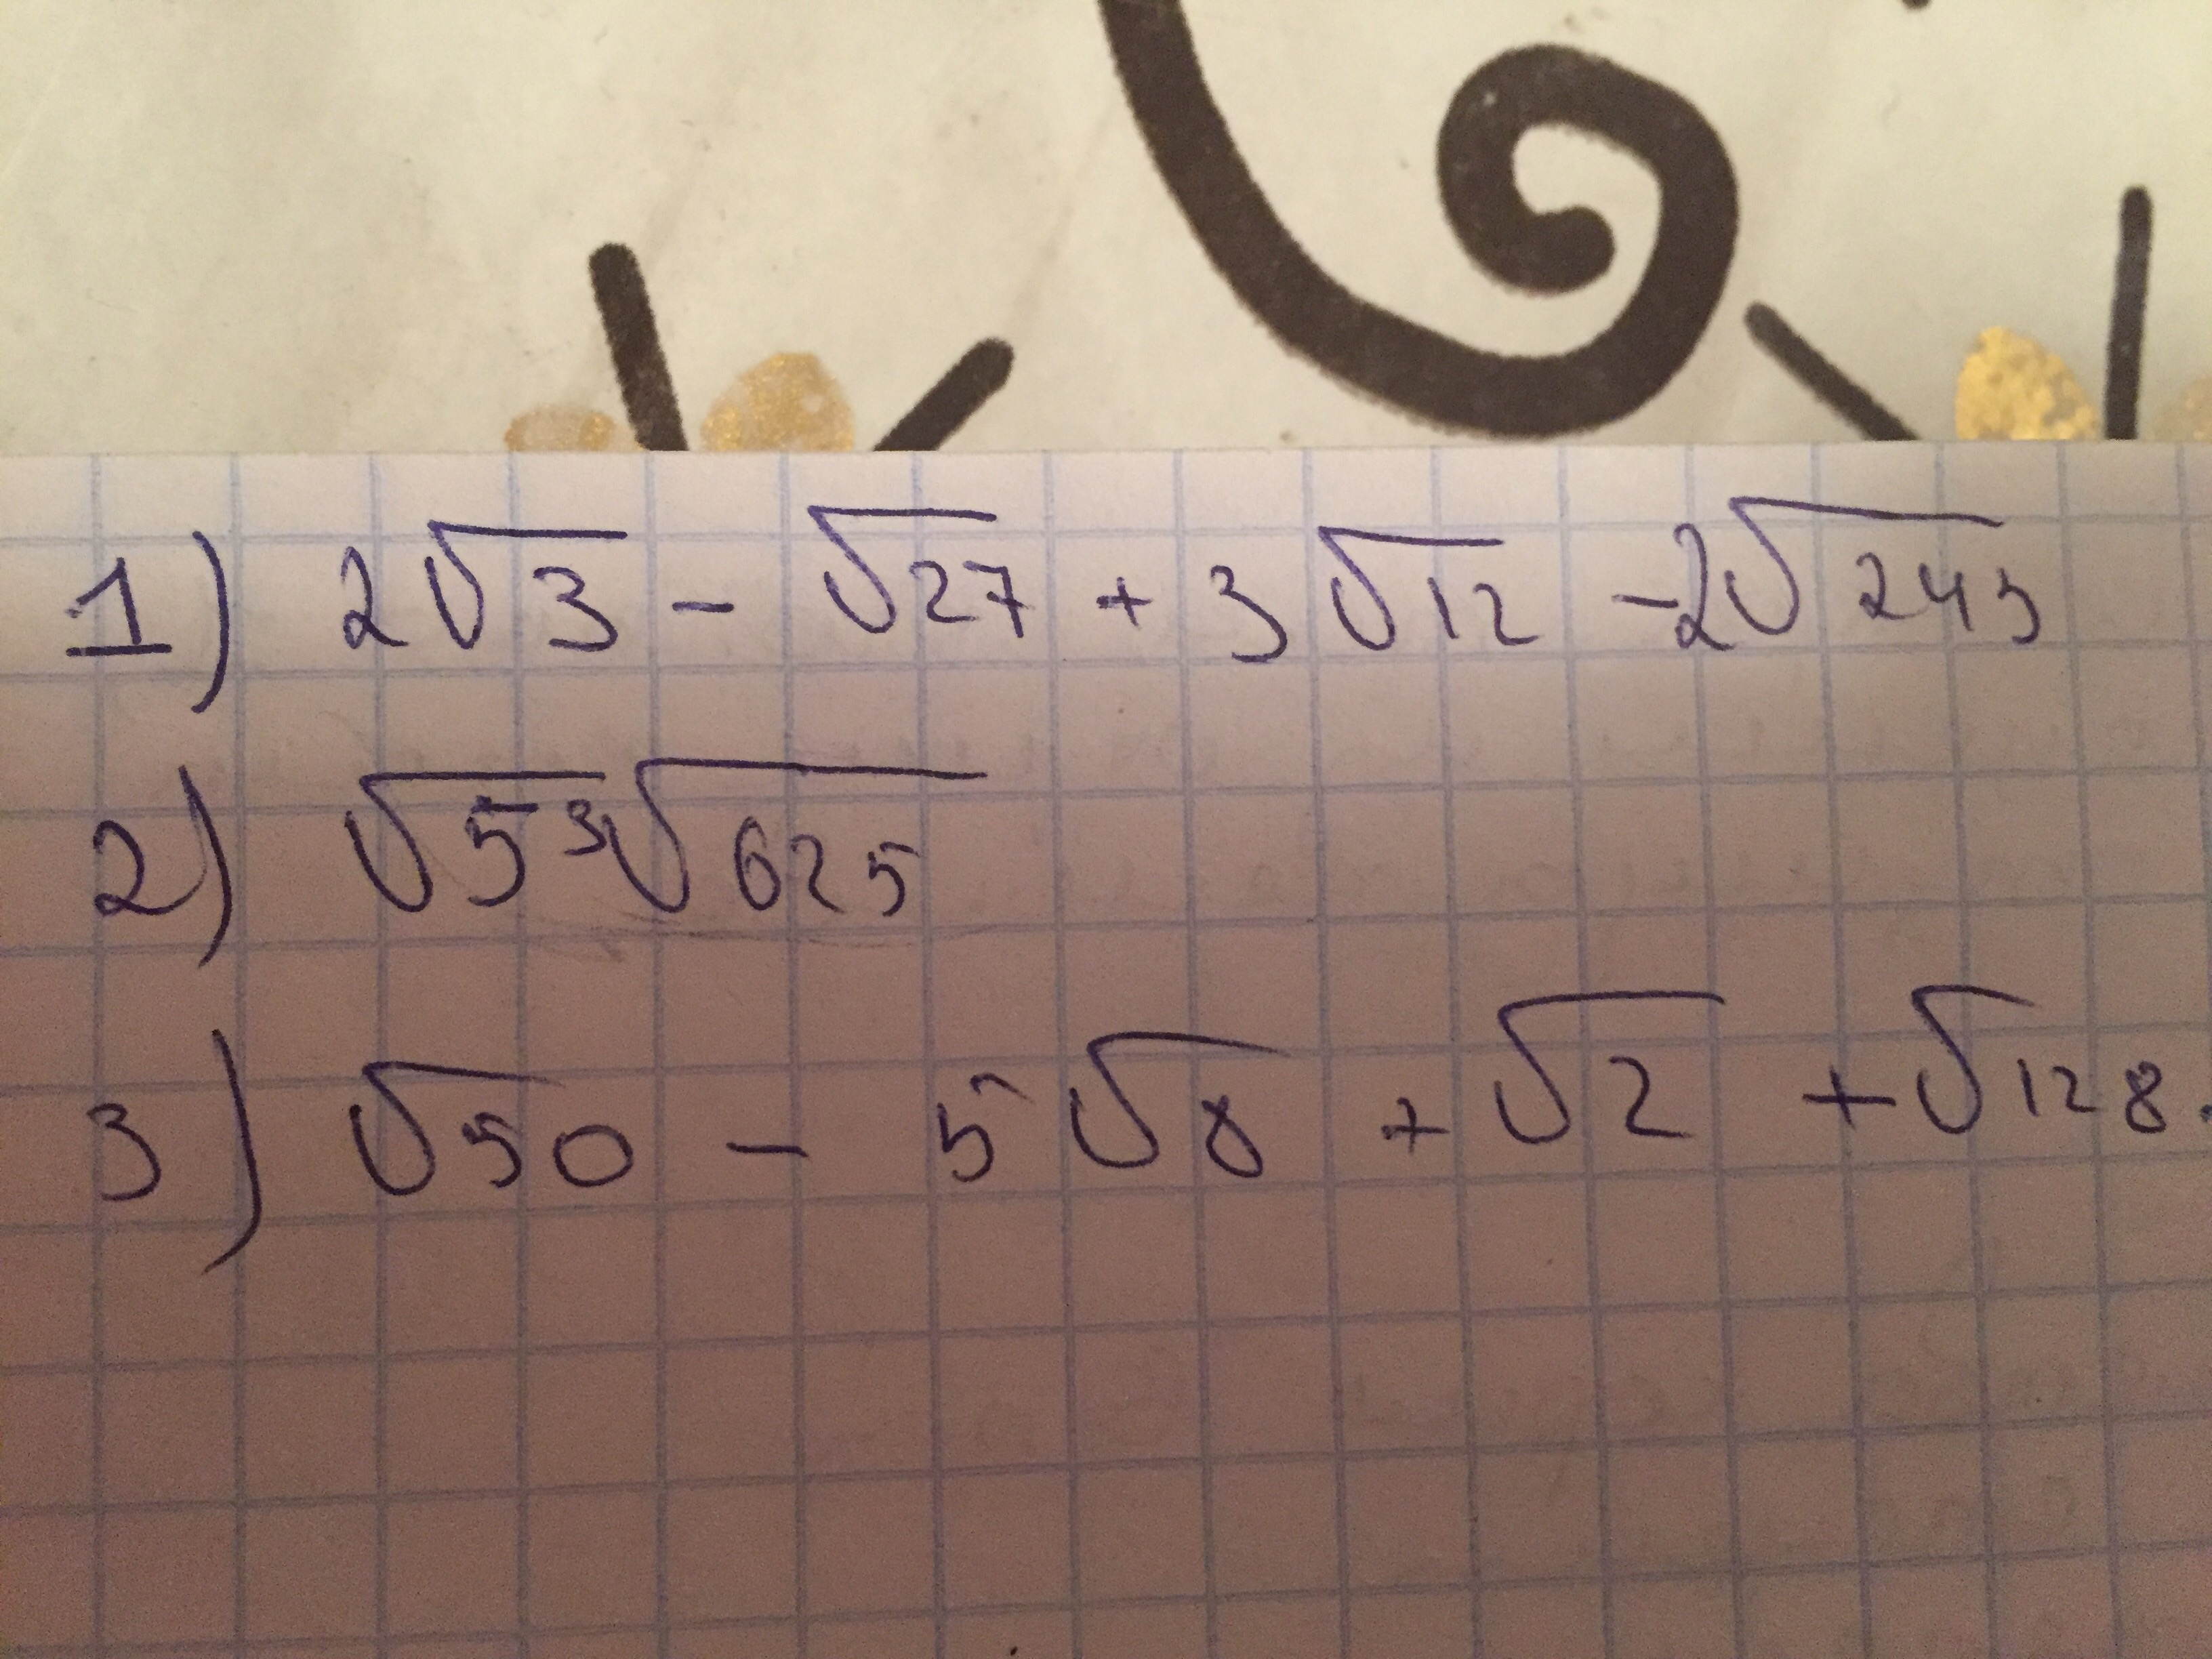 1) 2√3 - √27 + 3√12 - 2√243
2) √5 ³√625
3) √50 - 5√8 + √2 + √128.